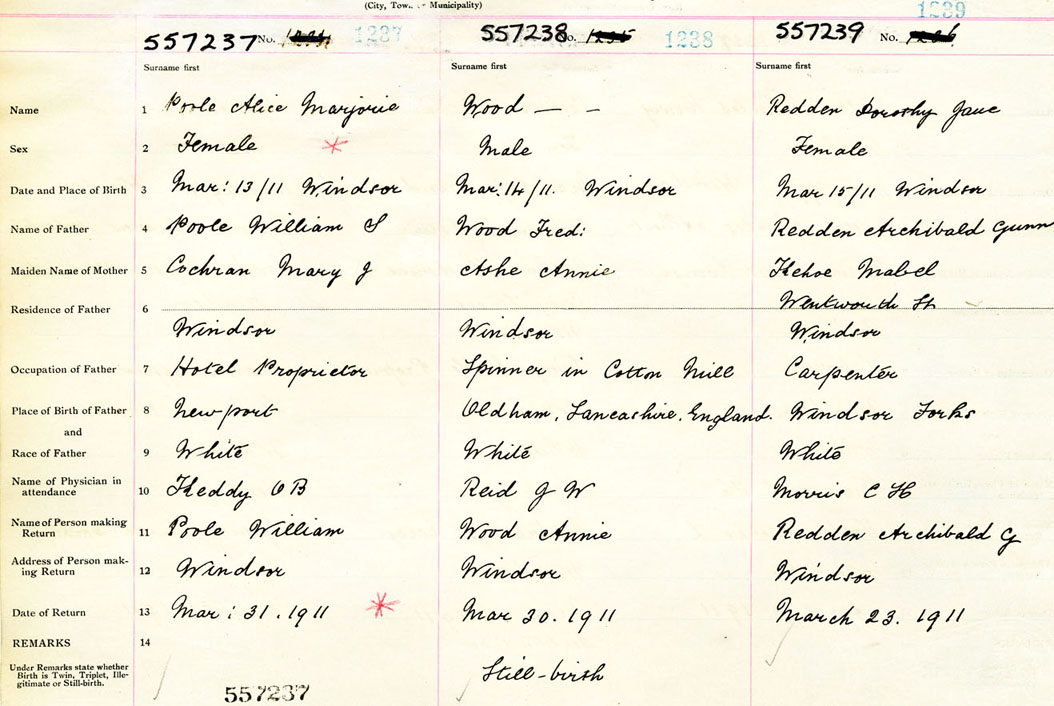 (City, Town or Municipality)
557237 No. 1237 557238 No. 1235 1238 557239 No. 1236 1239
Surname first Surname first Surname first
Name 1 Poole Alice Marjorie Wood — – Redden Dorothy Jane
Sex 2 Female * Male Female
Date and Place of Birth 3 Mar: 13/11 Windsor Mar: 14/11. Windsor Mar 15/11 Windsor
Name of Father 4 Poole William S Wood Fred: Redden Archibald Gunn
Maiden Name of Mother 5 Cochran Mary J Ashe Annie Kehoe Mabel
Residence of Father 6 Wentworth St
Windsor Windsor Windsor
Occupation of Father 7 Hotel Proprietor Spinner in Cotton Mill Carpenter
Place of Birth of Father 8 Newport Oldham, Lancashire, England. Windsor Forks
and
Race of Father 9 White White White
Name of Physician in
attendance 10 Keddy O B Reid J W Morris C H
Name of Person making
Return 11 Poole William Wood Annie Redden Archibald G
Address of Person mak-
ing Return 12 Windsor Windsor Windsor
Date of Return 13 Mar: 31. 1911 * Mar 30. 1911 March 23. 1911
REMARKS 14
Under Remarks state whether
Birth is Twin, Triplet, Ille-
gitimate or Still-birth. Still-birth
557237